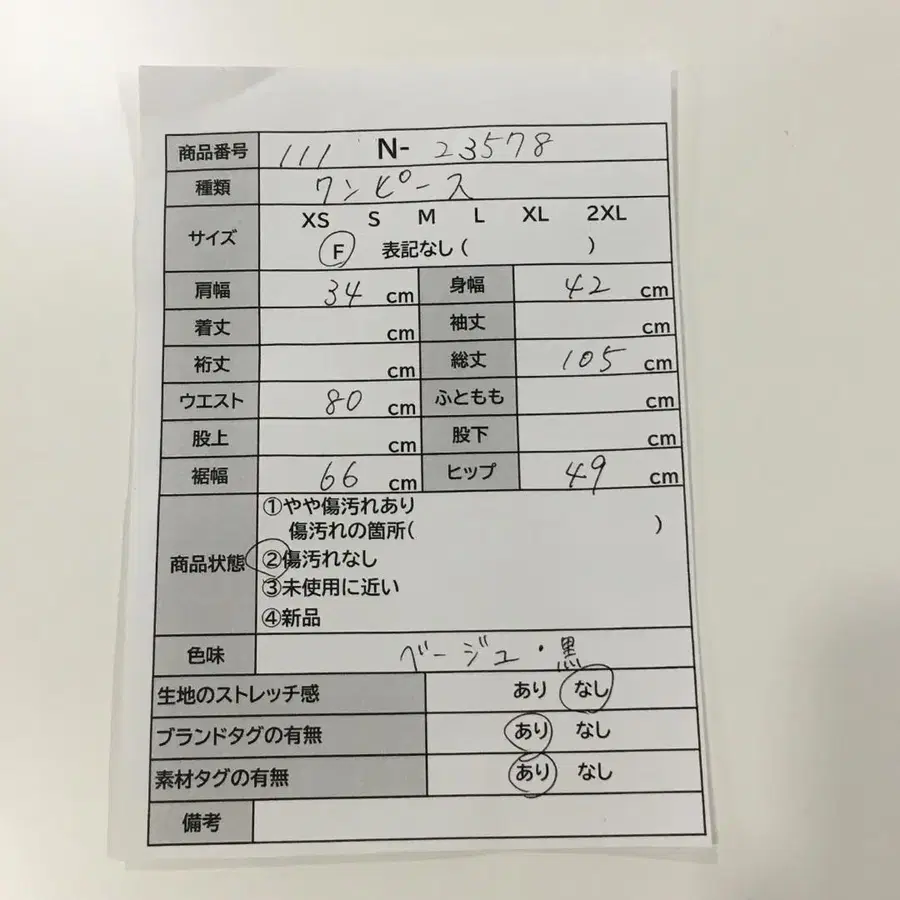 商品番号 111 N- 23578
種類 ワンピース
サイズ XS S M L XL 2XL
F 表記なし( )
肩幅 34 cm 身幅 42 cm
着丈 cm 袖丈 cm
裄丈 cm 総丈 105 cm
ウエスト 80 cm ふともも cm
股上 cm 股下 cm
裾幅 66 cm ヒップ 49 cm
①やや傷汚れあり
傷汚れの箇所( )
商品状態 ②傷汚れなし
③未使用に近い
④新品
色味 ベージュ・黒
生地のストレッチ感 あり なし
ブランドタグの有無 あり なし
素材タグの有無 あり なし
備考